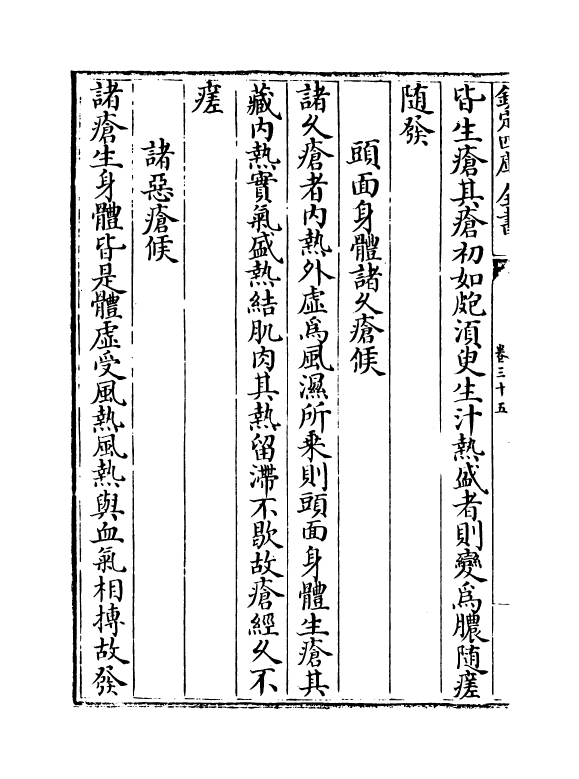 欽定四庫全書
卷三十五
皆生瘡其瘡初如皰須臾生汁熱盛者則變為膿隨瘥
隨發
頭面身體諸久瘡候
諸久瘡者內熱外虛為風濕所乘則頭面身體生瘡其
藏內熱實氣盛熱結肌肉其熱留滯不歇故瘡經久不
瘥
諸惡瘡候
諸瘡生身體皆是體虛受風熱風熱與血氣相摶故發